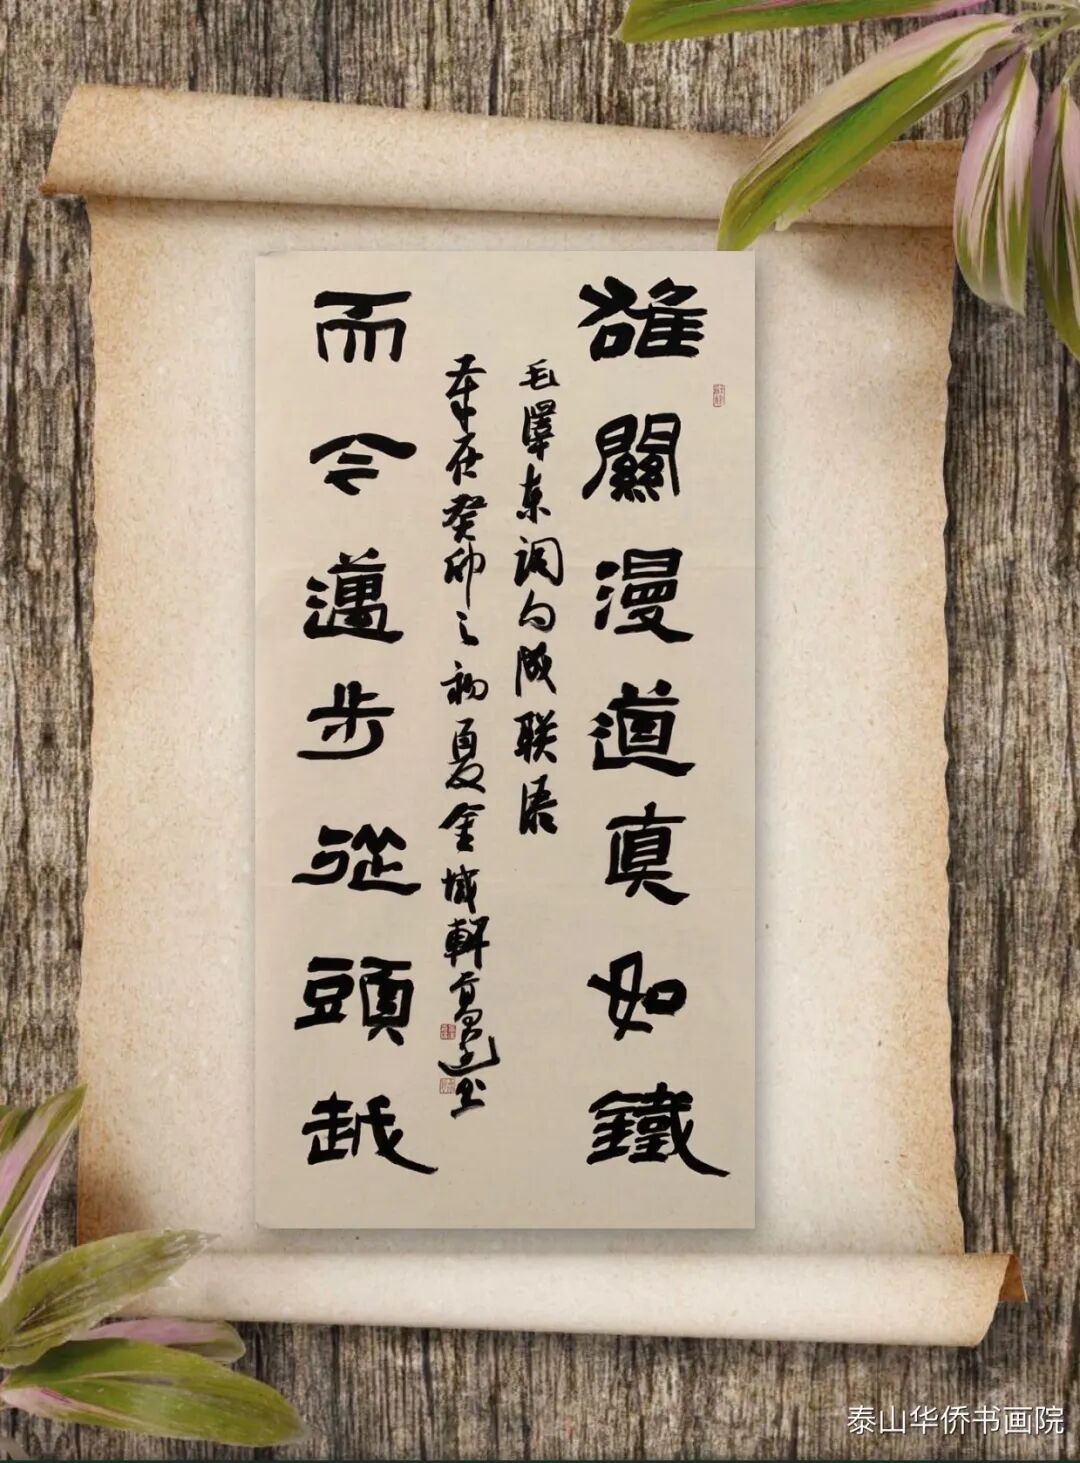 雄關漫道真如鐵
毛澤东词句成联语
歲在癸卯之初夏金城軒书
而今邁步從頭越
泰山华侨书画院